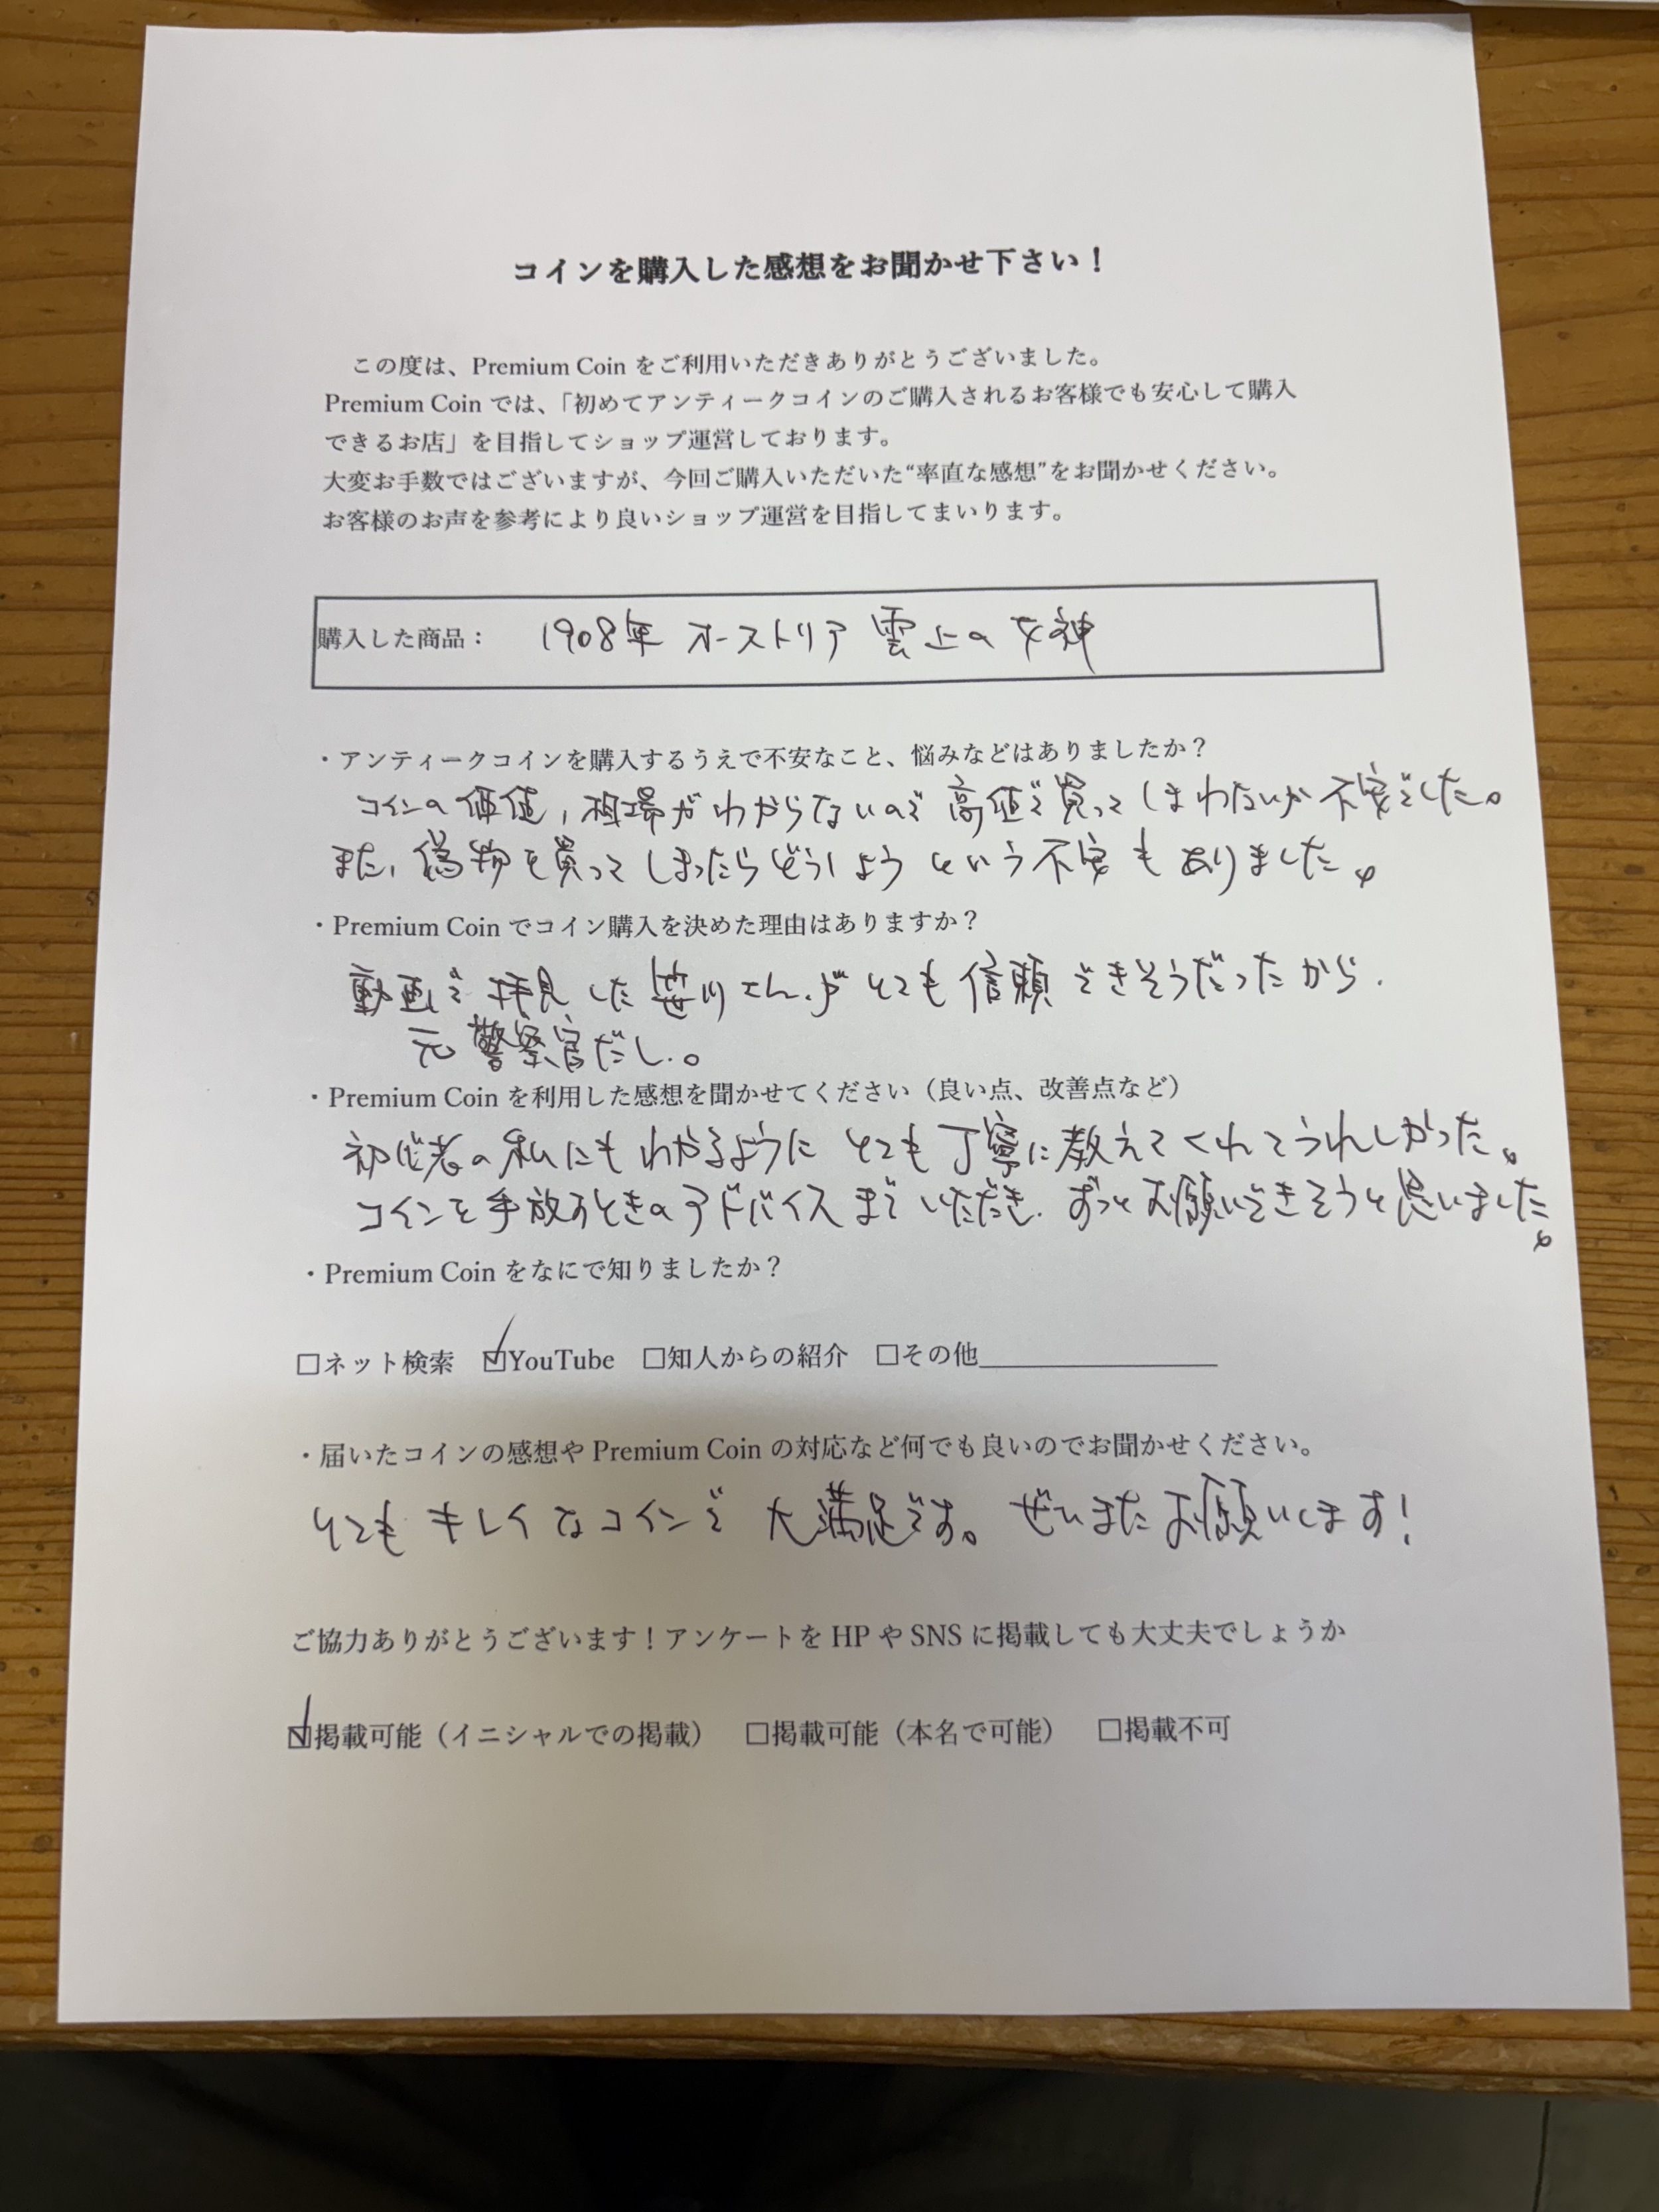 コインを購入した感想をお聞かせ下さい！
この度は、Premium Coin をご利用いただきありがとうございました。
Premium Coin では、「初めてアンティークコインのご購入されるお客様でも安心して購入
できるお店」を目指してショップ運営しております。
大変お手数ではございますが、今回ご購入いただいた“率直な感想”をお聞かせください。
お客様のお声を参考により良いショップ運営を目指してまいります。
購入した商品： 1908年 オーストリア 雲上の女神
・アンティークコインを購入するうえで不安なこと、悩みなどはありましたか？
コインの価値，相場がわからないので高値で買ってしまわないか不安でした。
また，偽物を買ってしまったらどうしようという不安もありました。
・Premium Coin でコイン購入を決めた理由はありますか？
動画で拝見した笹川さんがとても信頼できそうだったから．
元警察官だし．。
・Premium Coin を利用した感想を聞かせてください（良い点、改善点など）
初心者の私にもわかるようにとても丁寧に教えてくれてうれしかった。
コインを手放すときのアドバイスまでいただき．ずっとお願いできそうと思いました。
・Premium Coin をなにで知りましたか？
□ネット検索 ☑YouTube □知人からの紹介 □その他＿＿＿＿＿＿＿＿
・届いたコインの感想や Premium Coin の対応など何でも良いのでお聞かせください。
とてもキレイなコインで大満足です。ぜひまたお願いします！
ご協力ありがとうございます！アンケートを HP や SNS に掲載しても大丈夫でしょうか
☑掲載可能（イニシャルでの掲載） □掲載可能（本名で可能） □掲載不可